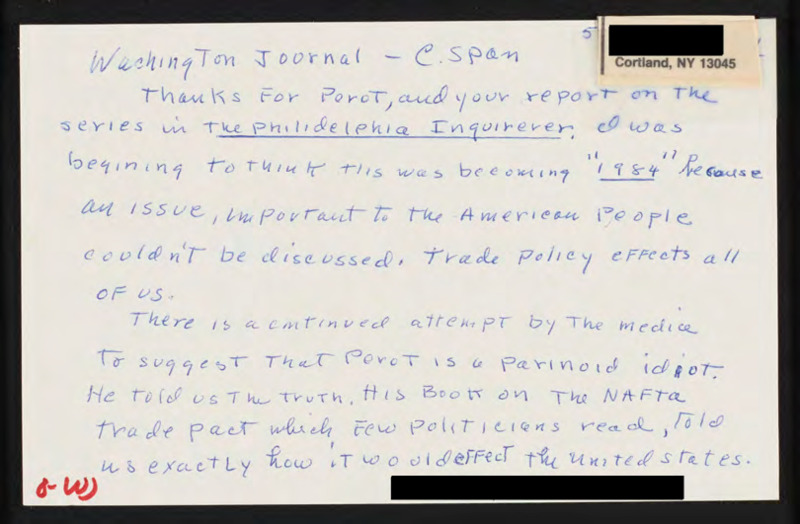 Washington Journal - C.Span
5
Cortland, NY 13045
Thanks For Perot, and your report on the
series in the Philidelphia Inquirever. I was
begining to think this was becoming "1984" because
an issue, important to the American People
couldn't be discussed. Trade Policy effects all
of us.
There is a cntinued attempt by the media
to suggest that Perot is a parinoid idiot.
He told us the truth. His Book on The NAFTa
trade pact which Few politicians read, Told
us exactly how it would effect the United States.